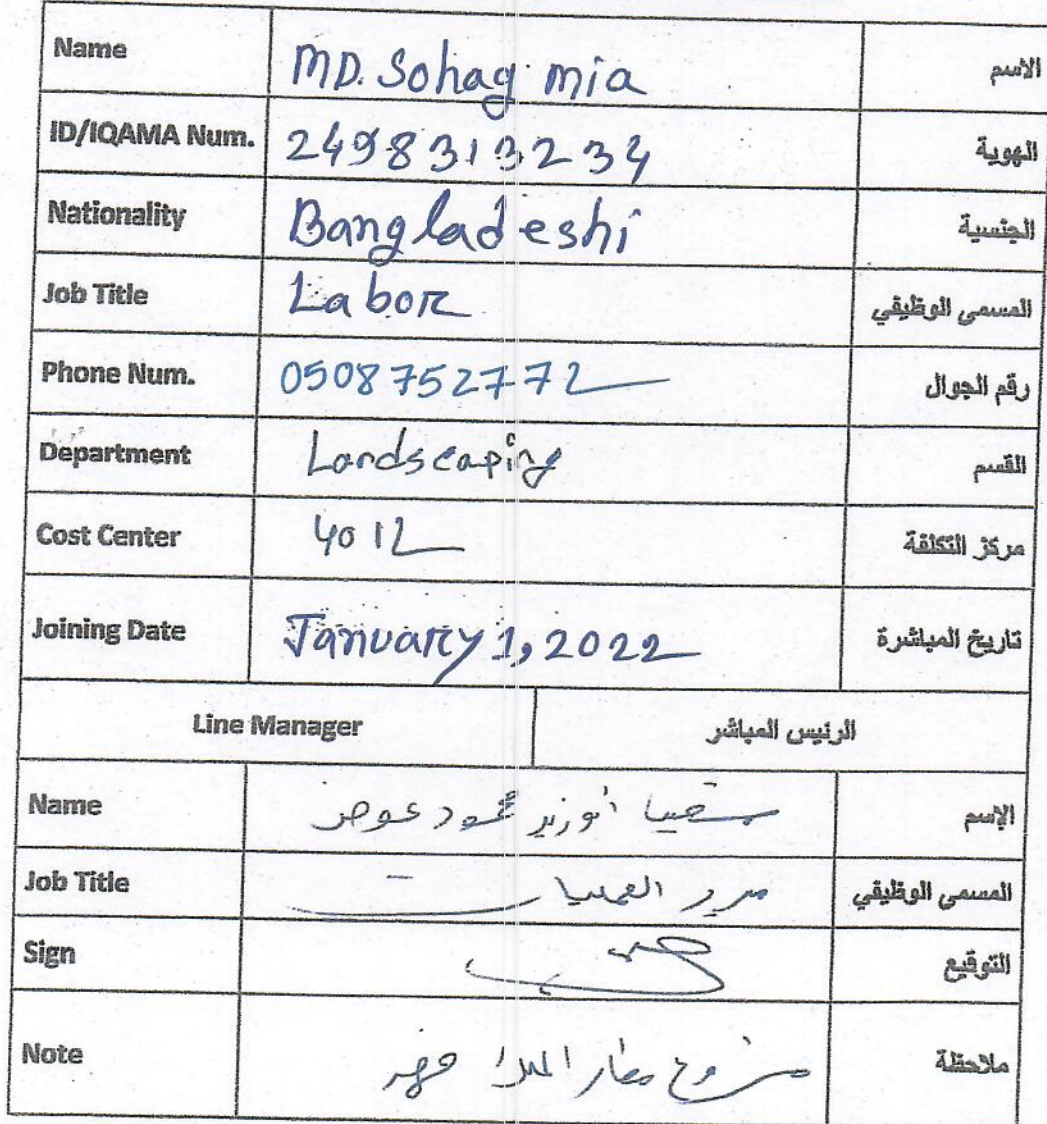 Name MD. Sohag mia الاسم
ID/IQAMA Num. 2498313234 الهوية
Nationality Bangladeshi الجنسية
Job Title Labor المسمى الوظيفي
Phone Num. 0508752772 رقم الجوال
Department Landscaping القسم
Cost Center 4012 مركز التكلفة
Joining Date January 1, 2022 تاريخ المباشرة
Line Manager الرئيس المباشر
Name محمود عوض الإسم
Job Title مدير العمليات المسمى الوظيفي
Sign التوقيع
Note مشروع مطار الملك فهد ملاحظة